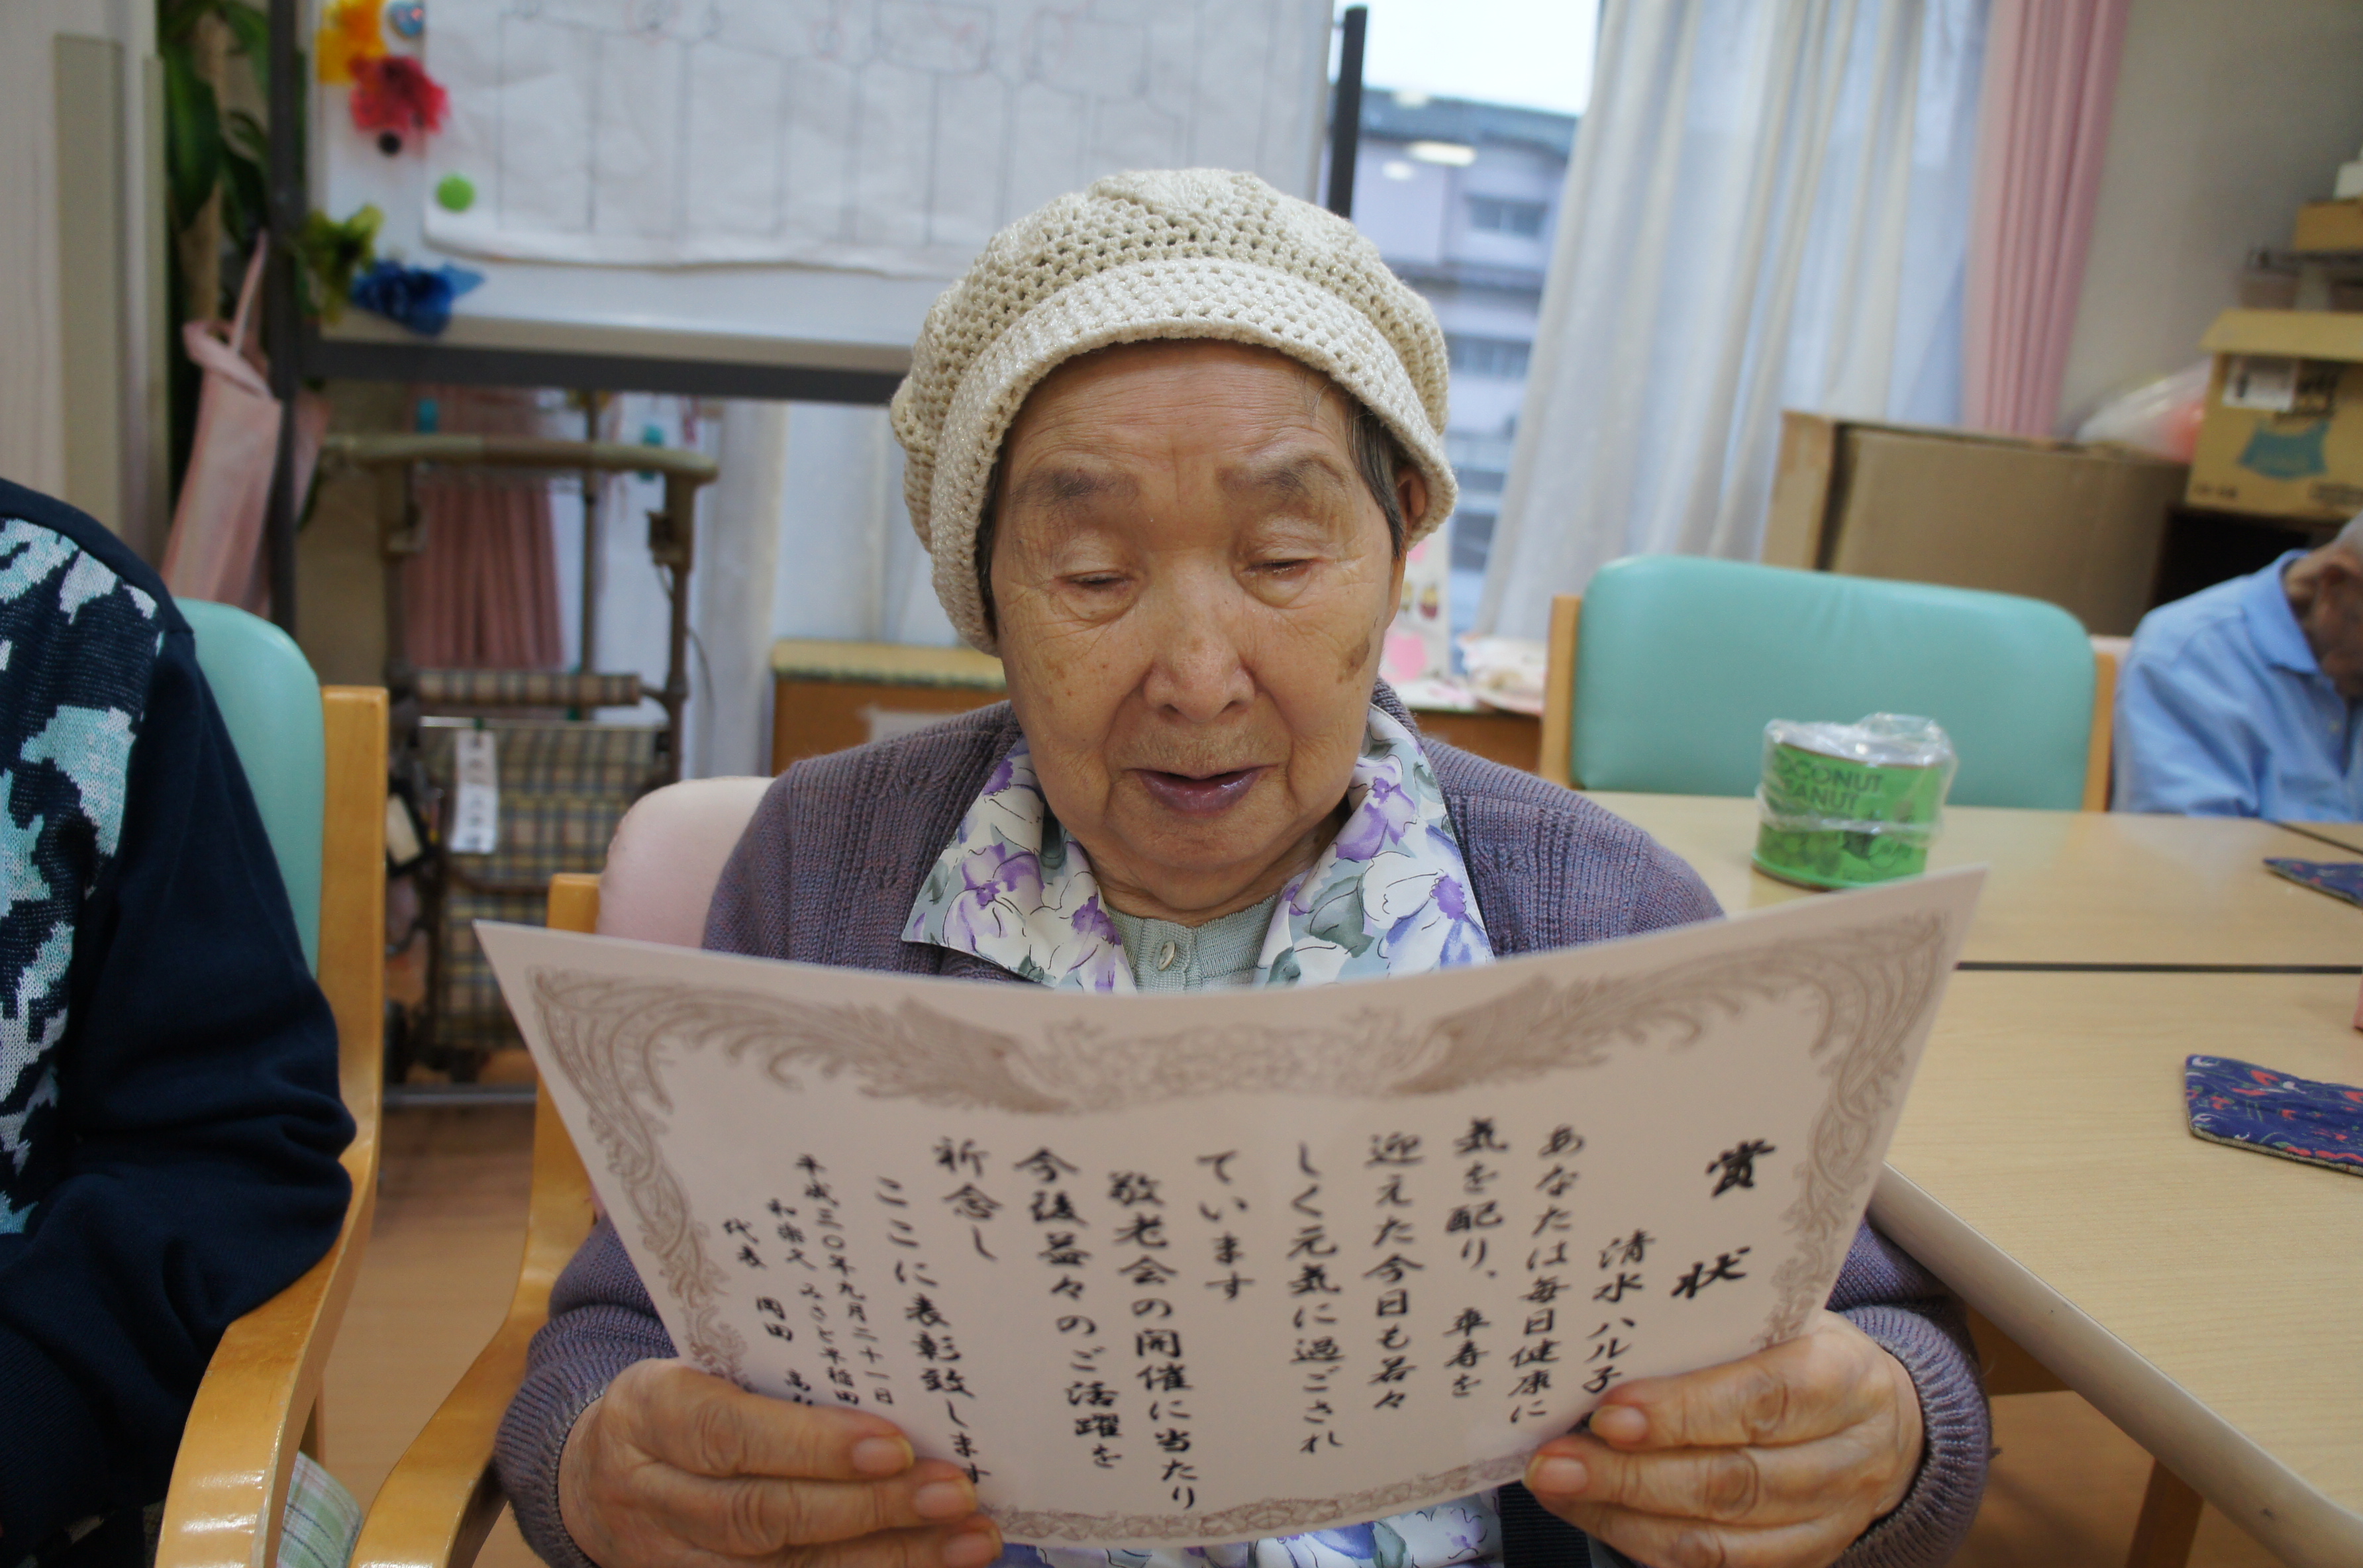 賞状
清水ハル子
あなたは毎日健康に
気を配り、卒寿を
迎えた今日も若々
しく元気に過ごされ
ています
敬老会の開催に当たり
今後益々のご活躍を
祈念し
ここに表彰致します
平成三〇年九月二十一日
和楽久 みさと早稲田
代表 岡田
COCONUT
PEANUT